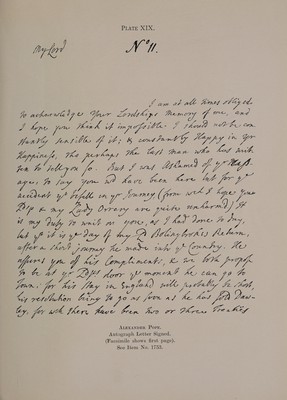 PLATE XIX.
My Lord
No 11.
I am at all times obliged
to acknowledge Your Lordships memory of me, and
I hope you think it impossible I should not be con
stantly sensible of it; & constantly Happy in Yor
Happiness, tho perhaps the last man who has writ
ten to tell you so. But I was Ashamed of yr Mess-
age, to say you had have been here but for ye
accident yt befell in yr Journey (from wch I hope your
Ldp & my Lady Orrery are quite unharmd) It
is my Duty to wait on you, & I had done to day,
but yt it is ye day of my Ld Bolingbroke's Return,
after a short journey he made into ye Country. He
assures you of his Compliments, & we both propose
to be at yr Ldps door ye moment he can go to
Town: for his stay in England will probably be short,
his resolution being to go as soon as he has sold Daw-
ley, for wch there have been two or three Treaties
ALEXANDER POPE.
Autograph Letter Signed.
(Facsimile shows first page).
See Item No. 1753.